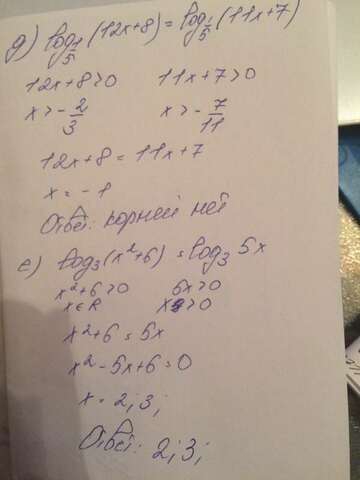 д) log 1/5 (12x+8) = log 1/5 (11x+7)
12x+8>0 11x+7>0
x>-2/3 x>-7/11
12x+8 = 11x+7
x = -1
Ответ: корней нет
е) log₃(x²+6) = log₃ 5x
x²+6>0 5x>0
x∈R x>0
x²+6 = 5x
x²-5x+6=0
x = 2; 3;
Ответ: 2; 3;